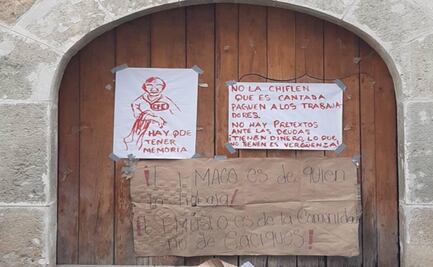 HAY QUE
TENER
MEMORIA
NO LA CHIFLEN
QUE ES CANTADA
PAGUEN A LOS TRABAJA
DORES.
NO HAY PRETEXTOS
ANTE LAS DEUDAS
¡TIENEN DINERO, LO QUE
NO TIENEN ES VERGÜENZA!
¡El MACO es de quien
lo trabaja!
¡El MUSEO es de la Comunidad
no de Caciques!